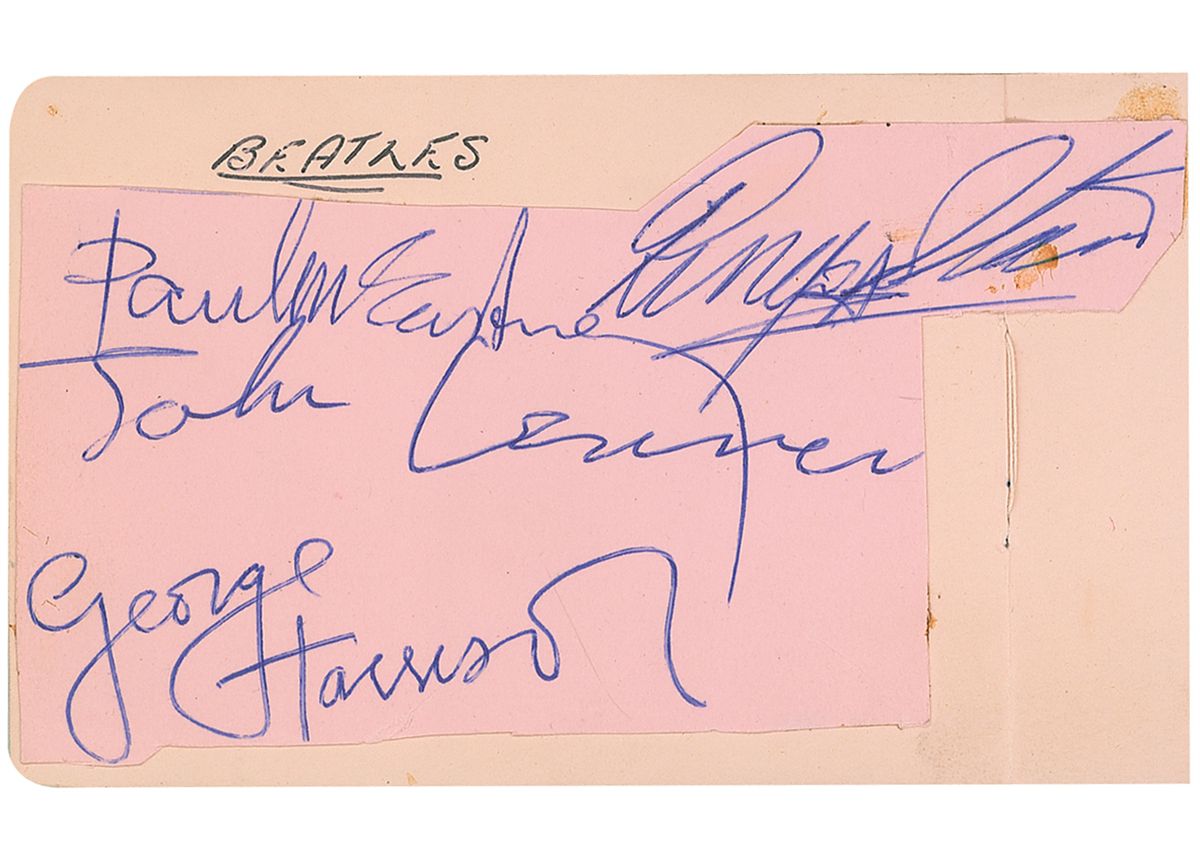 BEATLES
Paul McCartney Ringo Starr
John Lennon
George
Harrison